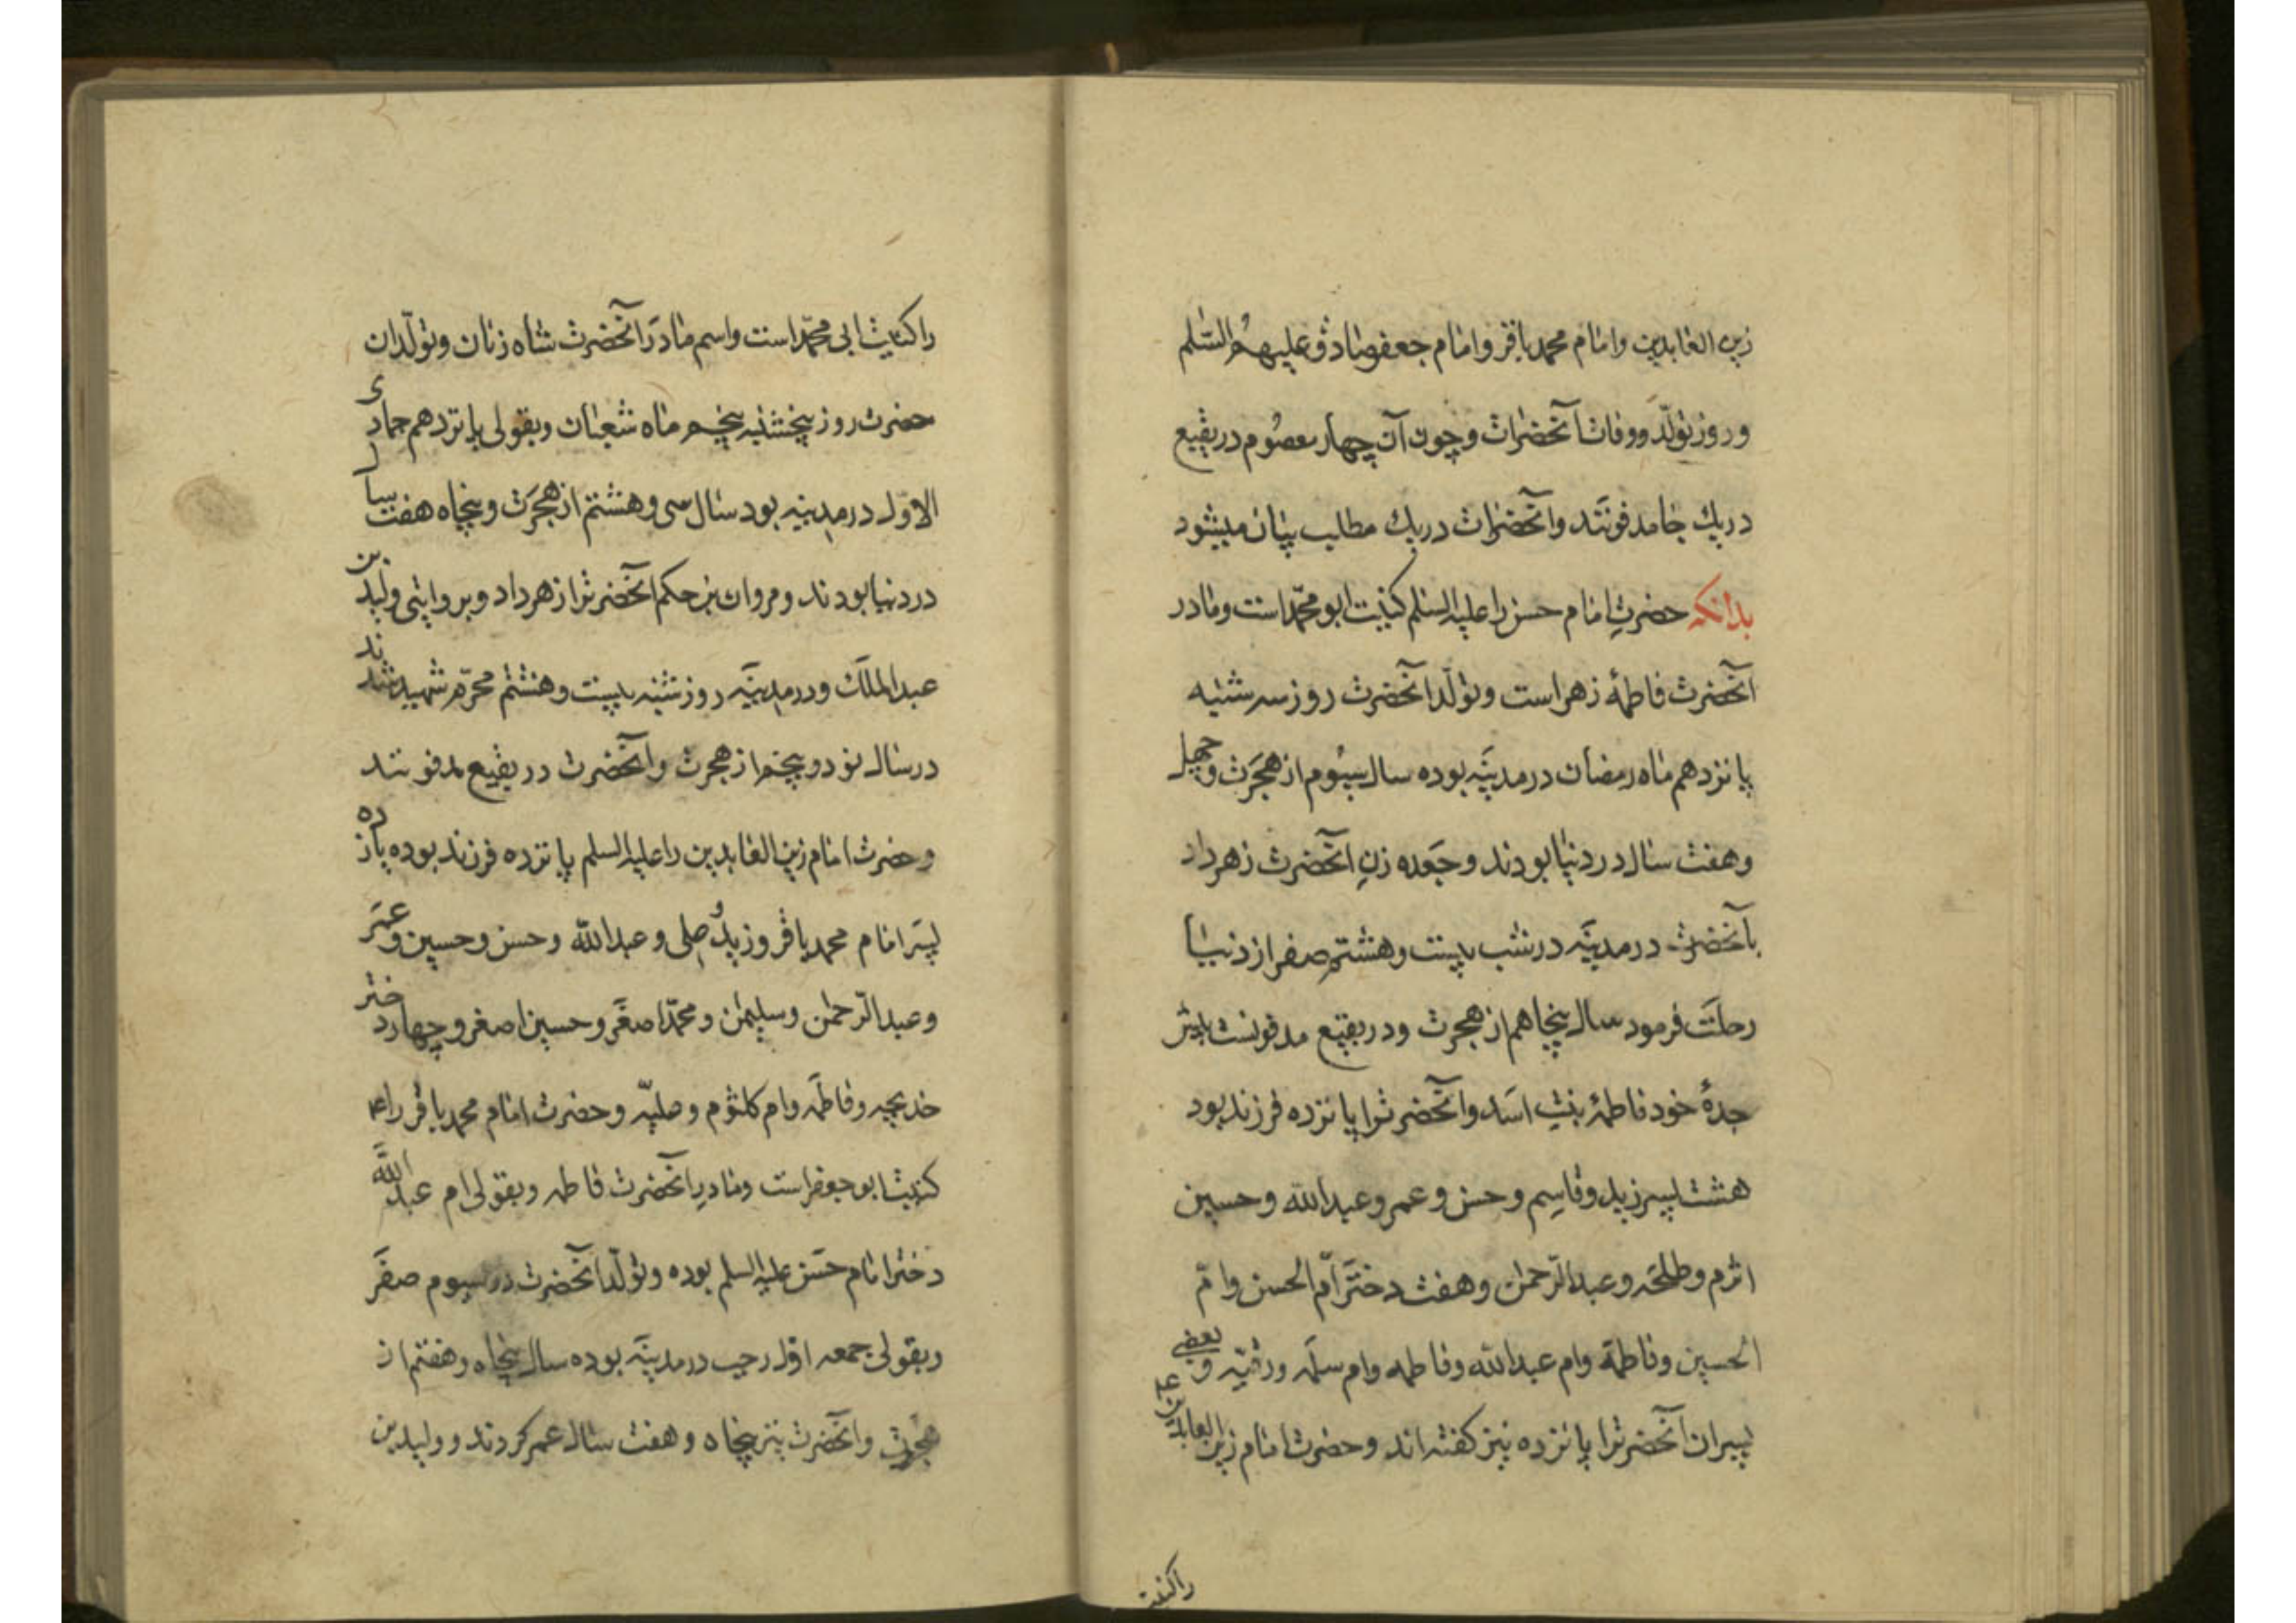 زین العابدین وامام محمد باقر وامام جعفر صادق علیهم السّلم
وروز تولّد ووفات آنحضرات وچون آن چهار معصوم در بقیع
دریك جا مدفونند وآنحضرات دریك مطالب بیان میشود
بدانکه حضرتِ امام حسن را علیه السلم کنیت ابو محمّد است ومادر
آنحضرت فاطمهٔ زهراست وتولّد آنحضرت روز سه شنبه
پانزدهم ماه رمضان در مدینَه بوده سال سیُوم از هجرَت وچهل
وهفت سال در دنیا بودند وجَعده زنِ آنحضرت زهر داد
بآنحضرت در مدینَه در شب بیست وهشتم صفر از دنیا
رحلَت فرمود سال پنجاهم از هجرت ودر بقیع مدفونست پیش
جدهٔ خود فاطمهٔ بنت اسَد وآنحضرترا پانزده فرزند بود
هشت پسر زید وقاسِم وحسن وعمر وعبدالله وحسین
اثرم وطلحَه وعبدالرّحمن وهفت دختَر امّ الحسن وامّ
الحسین وفاطمَة وام عبدالله وفاطمه وام سلَمه ورقیّه وبعضی
پسران آنحضرترا پانزده نیز کفته اند وحضرت امام زین العابدین ع
راکنیت
را کنیت ابی محمّد است واسم مادَر آنحضرت شاه زنان وتولّد ان
حضرت روز پنجشنبه پنجم ماه شعبان وبقولی پانزدهم جمادی
الاوّل در مدینه بود سال سی وهشتم از هجرَت وپنجاه هفت سال
در دنیا بودند ومروان بن حکم آنحضرترا زهر داد وبروایتی ولید بن
عبدالملَك ودر مدینَه روز شنبه بیست وهشتم محرّم شهید شدند
در سال نود وپنجم از هجرت وآنحضرت در بقیع مدفونند
وحضرت امام زین العابدین را علیه السلم پانزده فرزند بوده یازده
پسَر امام محمد باقر وزید وعبدالله وحسن وحسین وعمَر
وعبدالرّحمن وسلیمن ومحمّد اصغَر وحسین اصغر وچهار دختر
خدیجه وفاطمَه وام کلثوم وعلیّه وحضرت امام محمد باقر را ع
کنیت ابو جعفر است ومادرِ آنحضرت فاطمه وبقولی ام عبدالله
دختر امام حسَن علیه السلم بوده وتولّد آنحضرت در سیوم صفَر
وبقولی جمعه اوّل رجب در مدینَه بوده سال پنجاه وهفتم از
هجرت وآنحضرت نیز پنجاه وهفت سال عمر کردند وولید بن